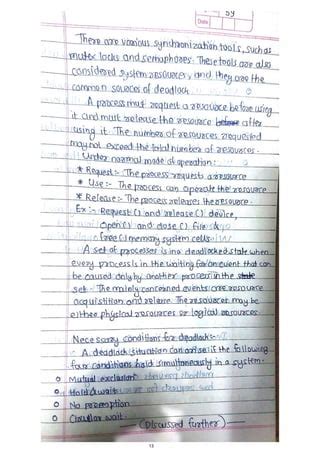 Date
59
There are various synchronization tools, such as
mutex locks and semaphores. These tools are also
considered system resources, and they are the
common sources of deadlock.
A process must request a resource before using
it and must release the resource before after
using it. The number of resources requested
may not exceed the total number of resources.
Under normal mode of operation:
* Request:- The process requests a resource
* Use:- The process can operate the resource
* Release:- The process releases the resource.
Ex:- Request() and release() device,
Open() and close() file &
free() memory system cells
A set of processes is in a deadlocked state when
every process is in the waiting for an event that can
be caused only by another process in the state
set. The mainly concerned events are resource
acquistition and release. The resources may be
either physical resources or logical resources
Necessary conditions for deadlock:-
A deadlock situation can arise if the following
four conditions hold simultaneously in a system.
Mutual exclusion
Hold & wait
No preemption
Circular wait.
(Discussed further)
13